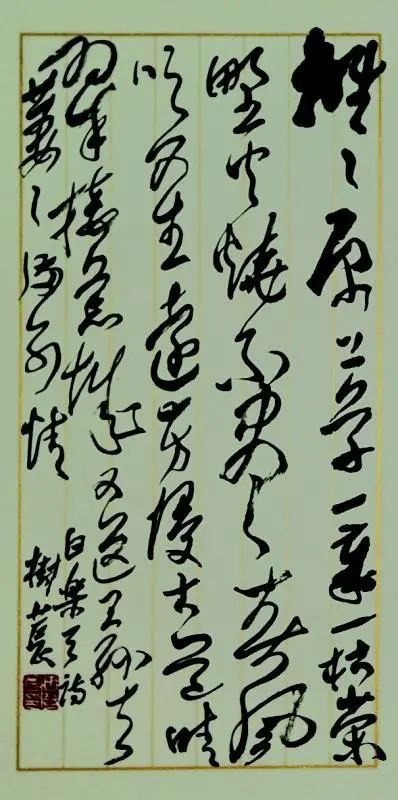 離々原上草一歲一枯榮
野火燒不盡春風
吹又生遠芳侵古道晴
翠接荒城又送王孫去
萋々滿別情
白樂天詩
樹